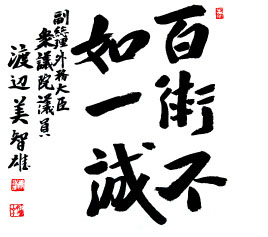 百術不
如一誠
副総理外務大臣
衆議院議員
渡辺美智雄